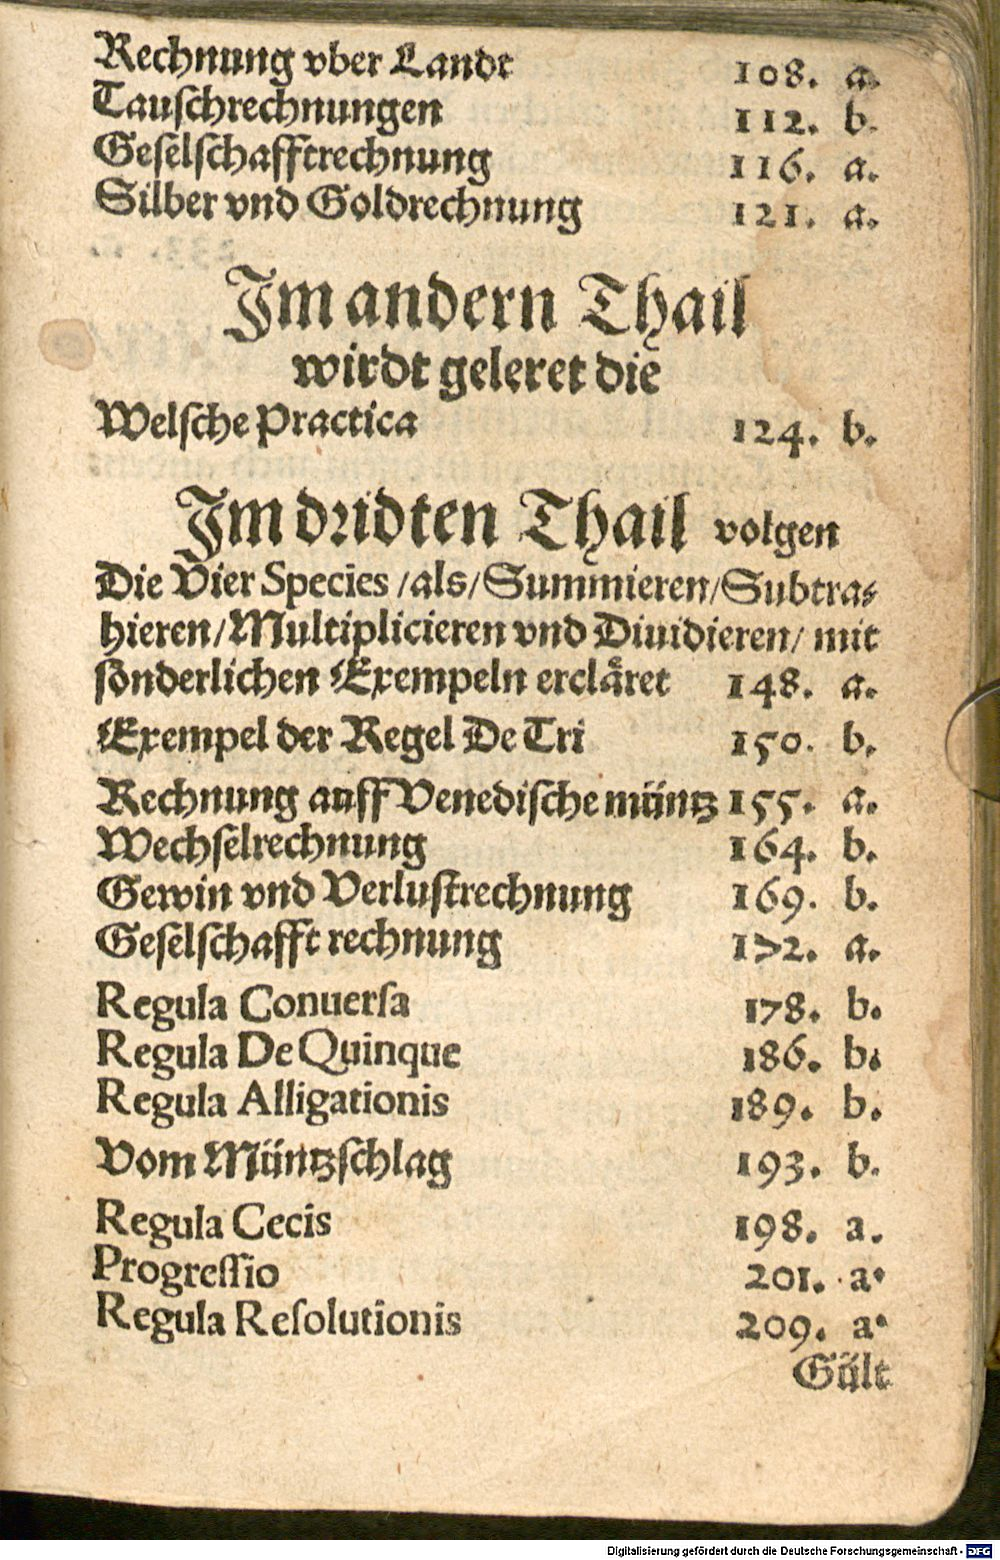 Rechnung vber Landt 108. a.
Tauschrechnungen 112. b.
Geselschafftrechnung 116. a.
Silber vnd Goldrechnung 121. a.
Im andern Thail
wirdt geleret die
Welsche Practica 124. b.
Im dridten Thail volgen
Die Vier Species /als/ Summieren/Subtra⸗
hieren/Multiplicieren vnd Diuidieren/ mit
sonderlichen Exempeln erclåret 148. a.
Exempel der Regel De Tri 150. b.
Rechnung auff Venedische müntz 155. a.
Wechselrechnung 164. b.
Gewin vnd Verlustrechnung 169. b.
Geselschafft rechnung 172. a.
Regula Conuersa 178. b.
Regula De Quinque 186. b.
Regula Alligationis 189. b.
Vom Müntzschlag 193. b.
Regula Cecis 198. a.
Progressio 201. a.
Regula Resolutionis 209. a.
Gült
Digitalisierung gefördert durch die Deutsche Forschungsgemeinschaft - DFG